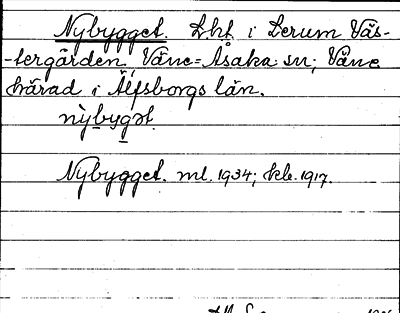 Nybygget. L.ht. i Lerum Väs-
-tergården, Väne-Åsaka sn; Väne
härad i Älfsborgs län.
nỳbygət.
Nybygget. ml. 1934; kb. 1917.